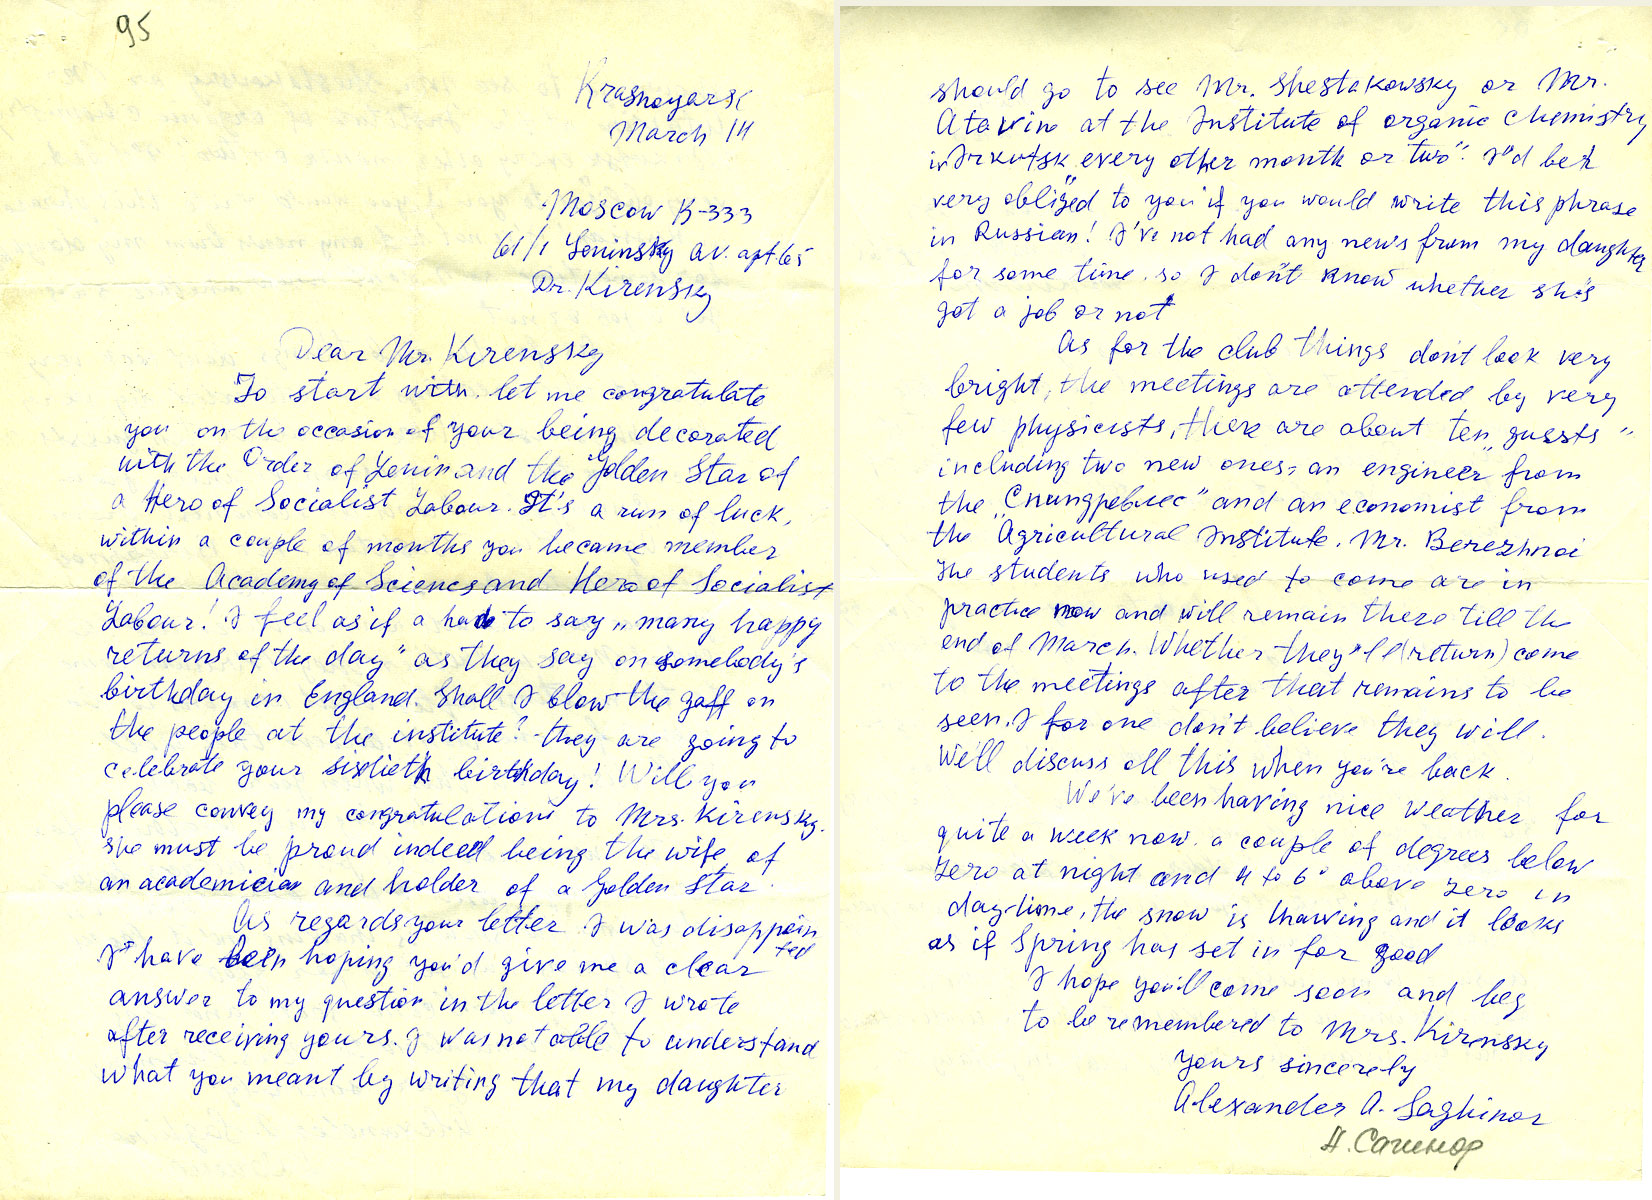 95
Krasnoyarsk
March 14
Moscow B-333
61/1 Leninsky av. apt 65
Dr. Kirensky
Dear Mr. Kirensky
To start with, let me congratulate
you on the occasion of your being decorated
with the Order of Lenin and the Golden Star of
a Hero of Socialist Labour. It's a run of luck,
within a couple of months you became member
of the Academy of Sciences and Hero of Socialist
Labour! I feel as if a had to say „many happy
returns of the day" as they say on somebody's
birthday in England. Shall I blow the gaff on
the people at the institute? they are going to
celebrate your sixtieth birthday! Will you
please convey my congratulations to Mrs. Kirensky.
She must be proud indeed being the wife of
an academician and holder of a Golden Star.
As regards your letter I was disappoin
ted
I have been hoping you'd give me a clear
answer to my question in the letter I wrote
after receiving yours. I was not able to understand
what you meant by writing that my daughter
should go to see Mr. Shestakowsky or Mr.
Atavine at the Institute of organic chemistry
in Irkutsk every other month or two". I'd be
very obliged to you if you would write this phrase
in Russian! I've not had any news from my daughter
for some time, so I don't know whether she's
got a job or not
As for the club things don't look very
bright, the meetings are attended by very
few physicists, there are about ten „guests"
including two new ones, an engineer from
the „Сибцветметниипроект" and an economist from
the Agricultural Institute, Mr. Berezhnoi
The students who used to come are in
practice now and will remain there till the
end of March. Whether they'll (return) come
to the meetings after that remains to be
seen. I for one don't believe they will.
We'll discuss all this when you're back.
We've been having nice weather for
quite a week now, a couple of degrees below
zero at night and 4 to 6° above zero in
day-time, the snow is thawing and it looks
as if Spring has set in for good
I hope you'll come soon and beg
to be remembered to Mrs. Kirensky
yours sincerely
Alexander A. Saghinor
А. Сагинор